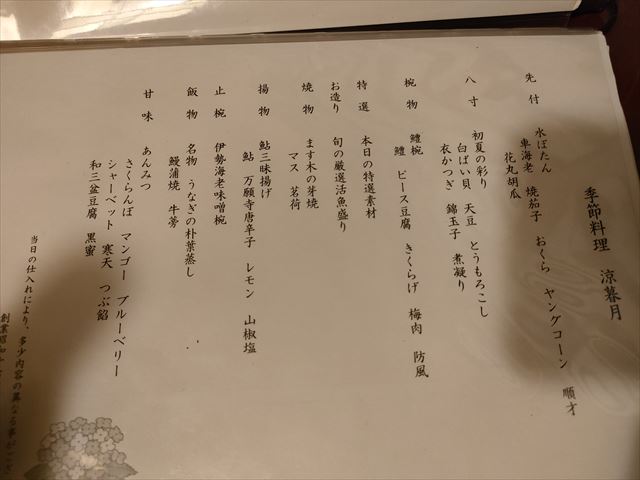 季節料理 涼暮月
先付
水ぼたん
車海老 焼茄子 おくら ヤングコーン 順才
花丸胡瓜
八寸
初夏の彩り
白ばい貝 天豆 とうもろこし
衣かつぎ 錦玉子 煮凝り
椀物
鱧椀
鱧 ピース豆腐 きくらげ 梅肉 防風
特選
本日の特選素材
お造り
旬の厳選活魚盛り
焼物
ます木の芽焼
マス 茗荷
揚物
鮎三昧揚げ
鮎 万願寺唐辛子 レモン 山椒塩
止椀
伊勢海老味噌椀
飯物
名物 うなぎの朴葉蒸し
鰻蒲焼 牛蒡
甘味
あんみつ
さくらんぼ マンゴー ブルーベリー
シャーベット 寒天 つぶ餡
和三盆豆腐 黒蜜
当日の仕入れにより、多少内容の異なる事がござ
創業昭和